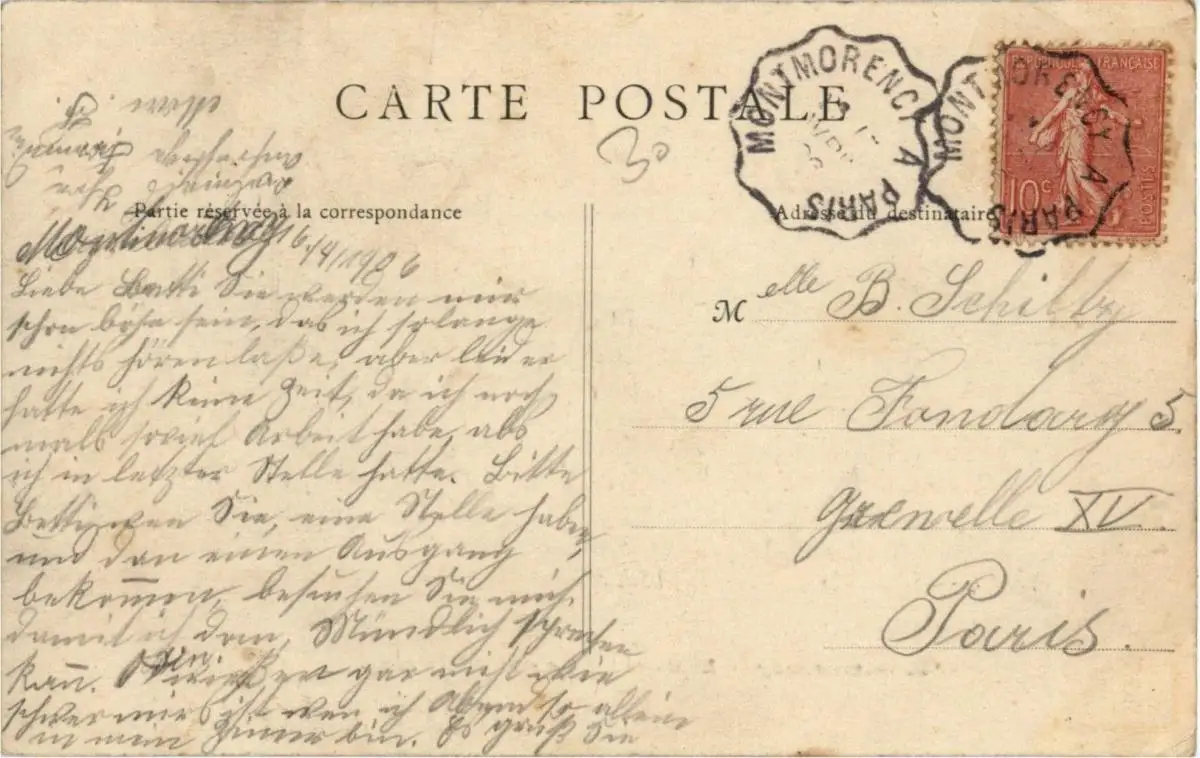 CARTE POSTALE
30
MONTMORENCY A PARIS
MONTMORENCY A PARIS
REPUBLIQUE FRANÇAISE
10c
POSTES
Partie réservée à la correspondance
Adresse du destinataire
Montmorency 16/4/1906
Liebe Betti Sie werden mir
schon böhse sein, das ich so lange
nichts hören laße, aber leider
hatte ich keine Zeit, da ich noch
mals soviel Arbeit habe, als
ich in letzter Stelle hatte. Bitte
Betti wen Sie, eine Stelle haben,
und dan einen Ausgang
bekom̅en, besuchen Sie mich.
damit ich dan, Mündlich sprechen
kan̅. gar nicht wie
schwer mirs ist wen ich Abens so allein
in mein Zimer bin. Es grüßt Sie
Mlle B. Schilby
5 rue Fondary 5.
Grenelle XV.
Paris.